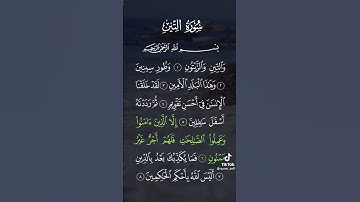 سُورَةُ التِّينِ
بِسْمِ اللَّهِ الرَّحْمَٰنِ الرَّحِيمِ
وَالتِّينِ وَالزَّيْتُونِ ١ وَطُورِ سِينِينَ
٢ وَهَٰذَا الْبَلَدِ الْأَمِينِ ٣ لَقَدْ خَلَقْنَا
الْإِنسَٰنَ فِي أَحْسَنِ تَقْوِيمٍ ٤ ثُمَّ رَدَدْنَٰهُ
أَسْفَلَ سَٰفِلِينَ ٥ إِلَّا الَّذِينَ ءَامَنُوا
وَعَمِلُوا الصَّٰلِحَٰتِ فَلَهُمْ أَجْرٌ غَيْرُ
مَمْنُونٍ ٦ فَمَا يُكَذِّبُكَ بَعْدُ بِالدِّينِ
٧ أَلَيْسَ اللَّهُ بِأَحْكَمِ الْحَٰكِمِينَ ٨
TikTok